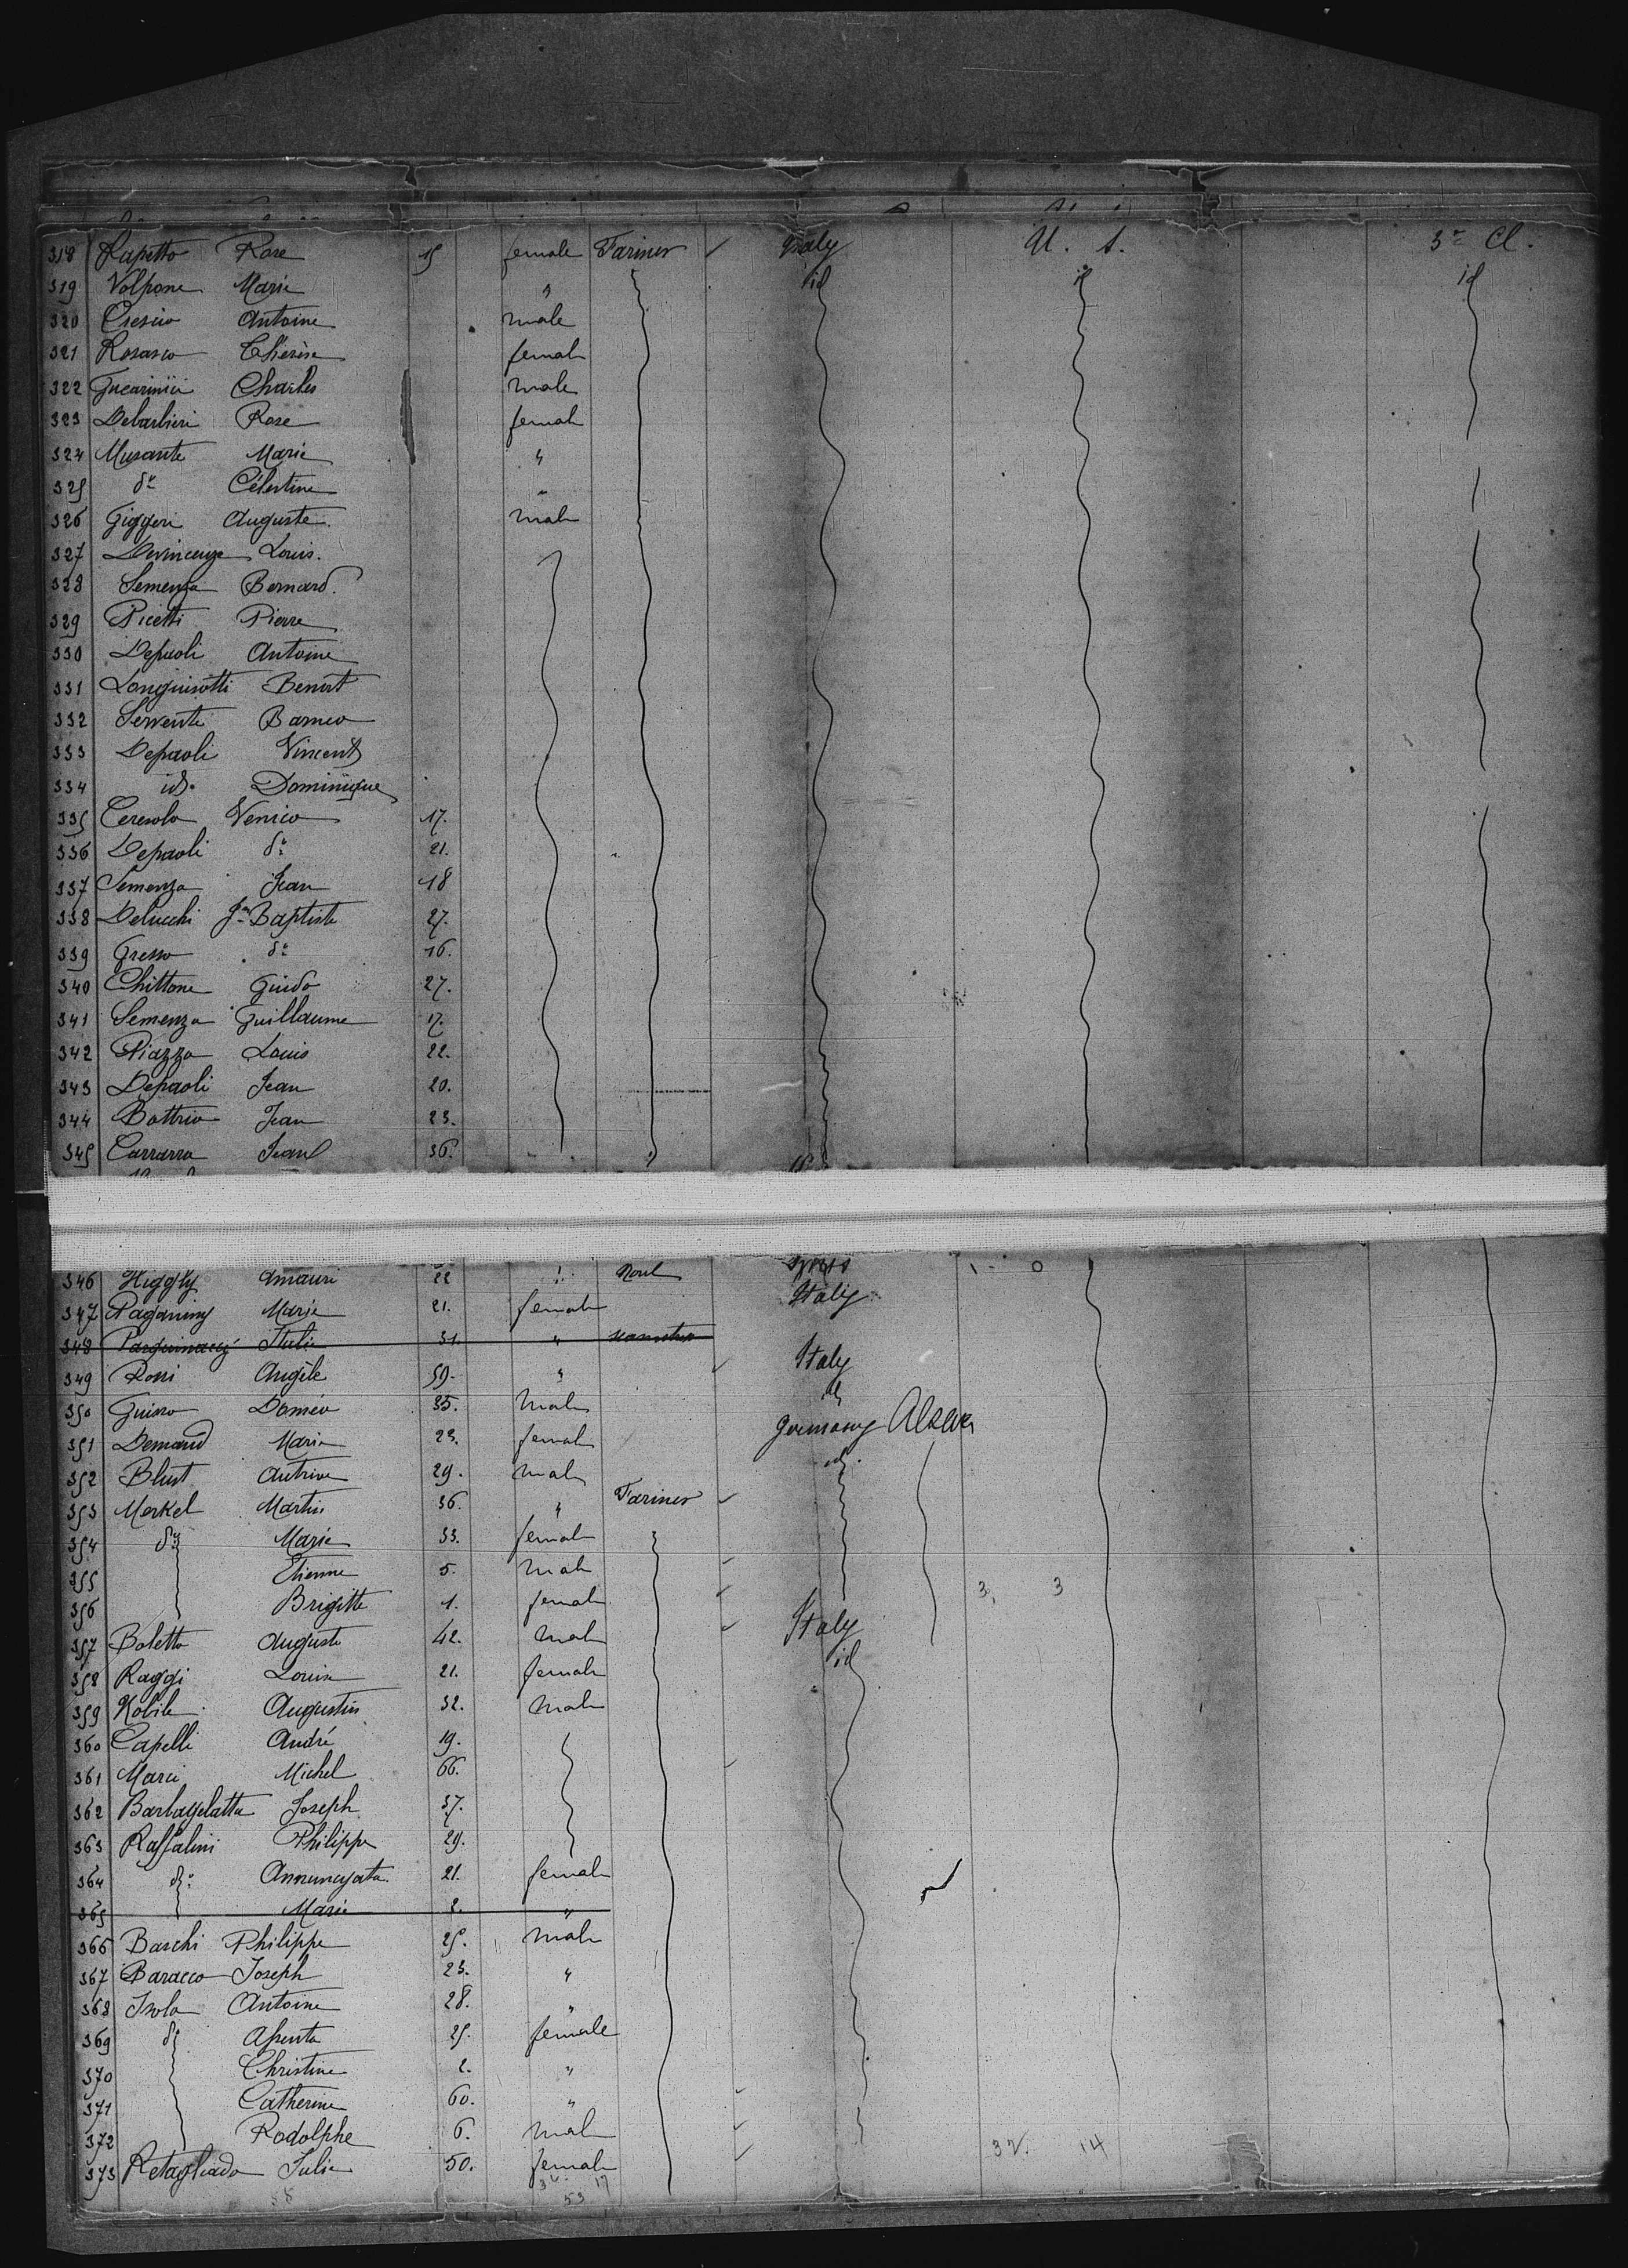 318 Rapetto Rose 15 female Farmer Italy U. S. 3e Cl.
319 Volpone Marie " id id id
320 Crescio Antoine male
321 Rosasco Thérèse female
322 Charles male
323 Debarbieri Rose female
324 Musante Marie "
325 do Célestine "
326 Giggeri Auguste male
327 Devincenze Louis.
328 Semenza Bernard.
329 Picetti Pierre
330 Depaoli Antoine
331 Longuinotti Benoit
332 Serventi Barneo
333 Depaoli Vincent
334 id. Dominique
335 Ceresola Venico 17.
336 Depaoli do 21.
337 Semenza Jean 18
338 Delucchi Jn Baptiste 27.
339 Gresso do 16.
340 Chittone Guido 27.
341 Semenza Guillaume 17.
342 Piazza Louis 22.
343 Depaoli Jean 20.
344 Bottrio Jean 23.
345 Carrarra Jean 36.
346 Higgly Amauri 22 " 1 - 0
347 Paganiny Marie 21. female Italy
348 Julie 31. "
349 Rossi Angèle 59. " Italy
350 Guisso Doméo 35. male id
351 Demand Marie 23. female Germany Alsace
352 Blust Antrive 29. male id.
353 Merkel Martin 36. " Farmer
354 do Marie 33. female
355 Etienne 5. male
356 Brigitte 1. female 3 3
357 Boletto Auguste 42. male Italy
358 Raggi Louise 21. female id
359 Nobile Augustin 32. male
360 Capelli André 19.
361 Marci Michel 66.
362 Barbagelatta Joseph 37.
363 Raffalini Philippe 29.
364 do Annunzyata 21. female
365 Marie 2. "
366 Baschi Philippe 25. male
367 Baracco Joseph 23. "
368 Isola Antoine 28. "
369 do Assunta 25. female
370 Christine 2. "
371 Catherine 60. "
372 Rodolphe 6. male 32. 14
373 Retagliada Julie 50. female
58 53